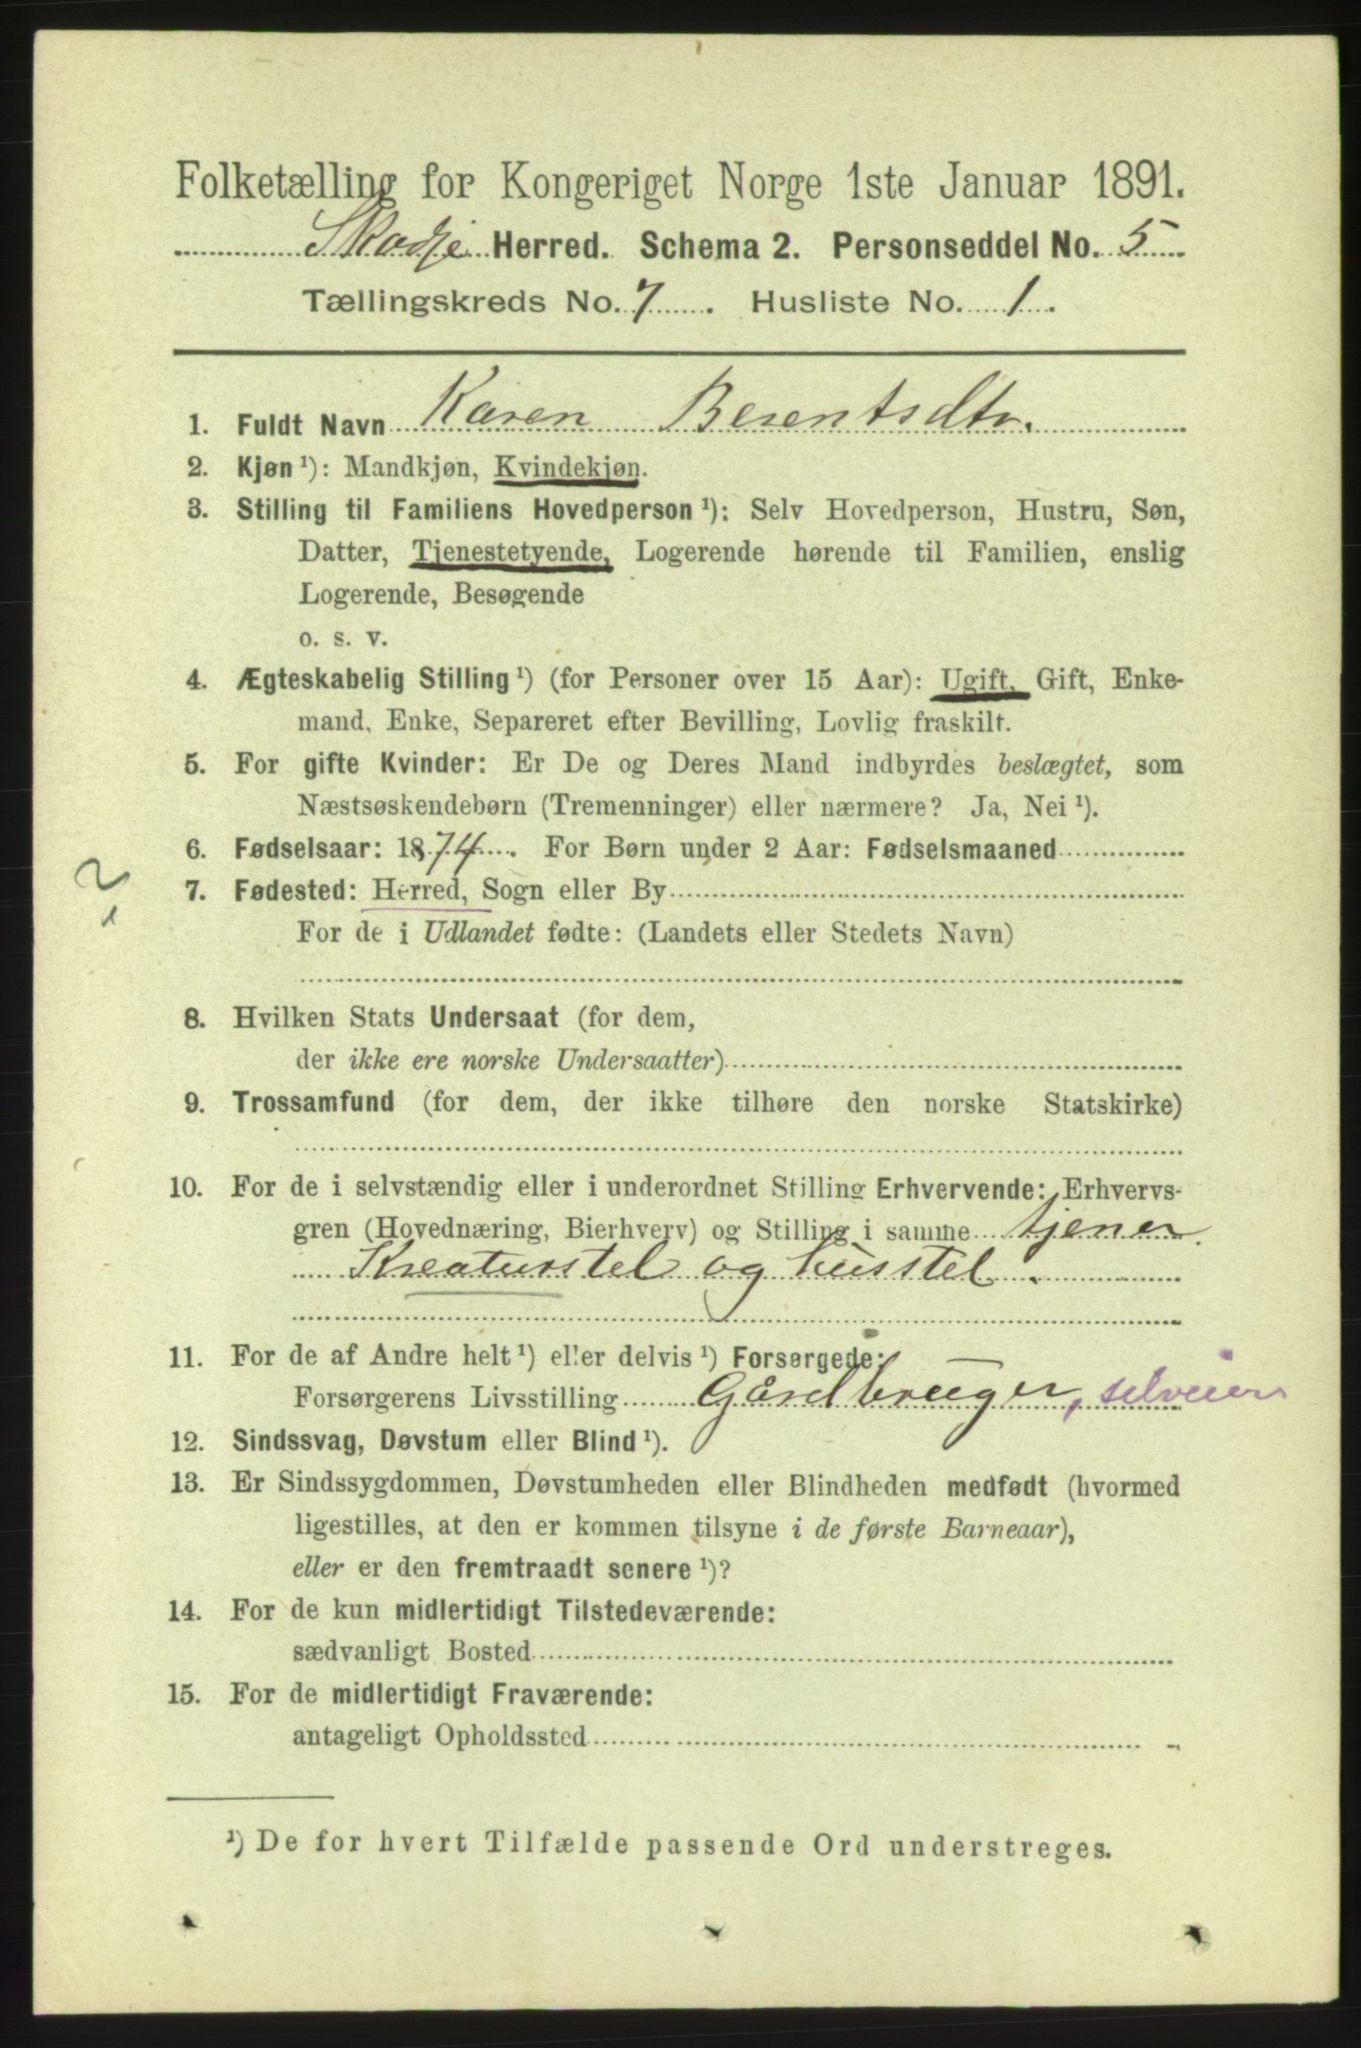 Folketælling for Kongeriget Norge 1ste Januar 1891.
Skodje Herred. Schema 2. Personseddel No. 5
Tællingskreds No. 7. Husliste No. 1.
1. Fuldt Navn Karen Berentsdtr.
2. Kjøn ¹): Mandkjøn, Kvindekjøn.
3. Stilling til Familiens Hovedperson ¹): Selv Hovedperson, Hustru, Søn,
Datter, Tjenestetyende, Logerende hørende til Familien, enslig
Logerende, Besøgende
o. s. v.
4. Ægteskabelig Stilling ¹) (for Personer over 15 Aar): Ugift, Gift, Enke-
mand, Enke, Separeret efter Bevilling, Lovlig fraskilt.
5. For gifte Kvinder: Er De og Deres Mand indbyrdes beslægtet, som
Næstsøskendebørn (Tremenninger) eller nærmere? Ja, Nei ¹).
6. Fødselsaar: 1874. For Børn under 2 Aar: Fødselsmaaned
?
7. Fødested: Herred, Sogn eller By
For de i Udlandet fødte: (Landets eller Stedets Navn)
8. Hvilken Stats Undersaat (for dem,
der ikke ere norske Undersaatter)
9. Trossamfund (for dem, der ikke tilhøre den norske Statskirke)
10. For de i selvstændig eller i underordnet Stilling Erhvervende: Erhvervs-
gren (Hovednæring, Bierhverv) og Stilling i samme tjener
Kreaturstel og husstel.
11. For de af Andre helt ¹) eller delvis ¹) Forsørgede:
Forsørgerens Livsstilling Gårdbruger, selveier
12. Sindssvag, Døvstum eller Blind ¹).
13. Er Sindssygdommen, Døvstumheden eller Blindheden medfødt (hvormed
ligestilles, at den er kommen tilsyne i de første Barneaar),
eller er den fremtraadt senere ¹)?
14. For de kun midlertidigt Tilstedeværende:
sædvanligt Bosted
15. For de midlertidigt Fraværende:
antageligt Opholdssted
¹) De for hvert Tilfælde passende Ord understreges.